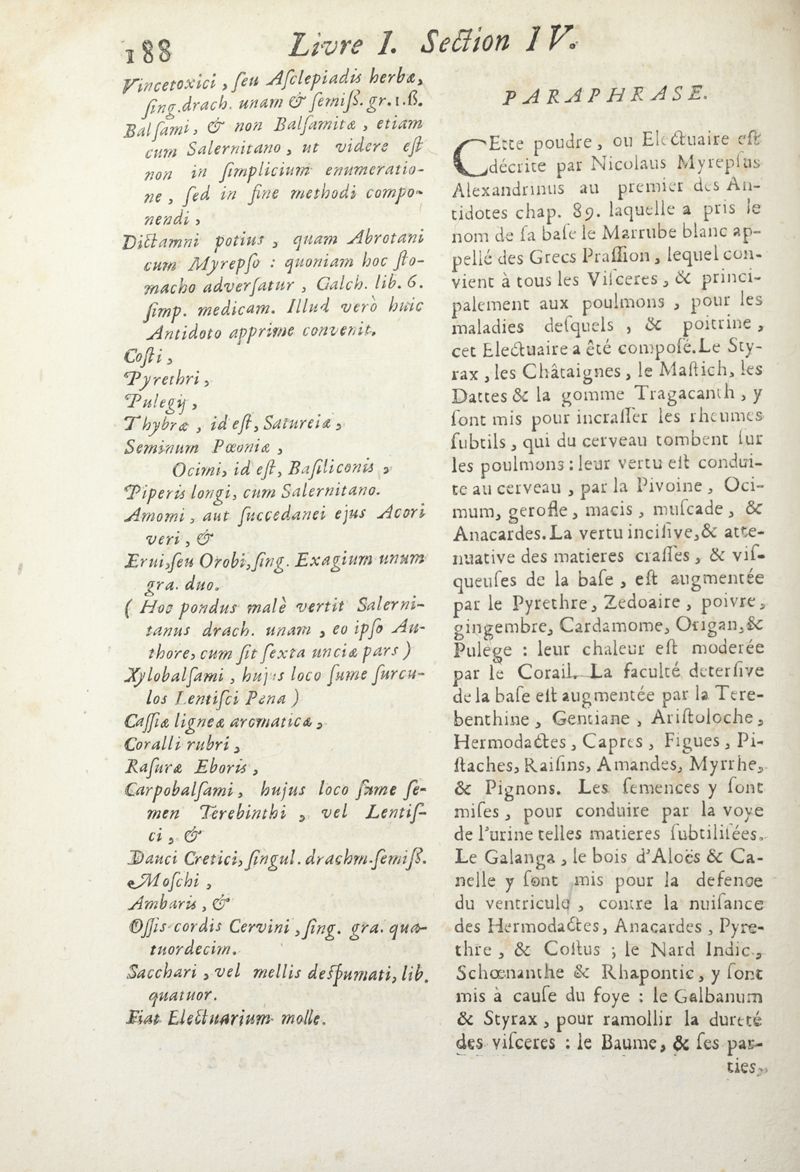 188 Livre I. Section IV.
Vincetoxici, ſeu Aſclepiadis herbæ,
ſing. drach. unam & ſemiſſ. gr. 1.ß.
Balſami, & non Balſamitæ, etiam
cum Salernitano, ut videre eſt
non in ſimplicium enumeratio-
ne, ſed in fine methodi compo-
nendi,
Dictamni potius, quam Abrotani
cum Myrepſo : quoniam hoc ſto-
macho adverſatur, Galch. lib. 6.
ſimp. medicam. Illud vero huic
Antidoto apprime convenit.
Coſti,
Pyrethri,
Pulegij,
Thybræ, id eſt, Satureiæ,
Seminum Pœoniæ,
Ocimi, id eſt, Baſiliconis,
Piperis longi, cum Salernitano.
Amomi, aut ſuccedanei ejus Acori
veri, &
Erui, ſeu Orobi, ſing. Exagium unum
gra. duo.
( Hoc pondus malè vertit Salerni-
tanus drach. unam, eo ipſo Au-
thore, cum ſit ſexta unciæ pars )
Xylobalſami, hujus loco ſume ſurcu-
los Lentiſci Pena )
Caſſiæ ligneæ aromaticæ,
Coralli rubri,
Raſuræ Eboris,
Carpobalſami, hujus loco ſume ſe-
men Terebinthi, vel Lentiſ-
ci, &
Dauci Cretici, ſingul. drachm. ſemiſſ.
Moſchi,
Ambaris, &
Oſſis cordis Cervini, ſing. gra. qua-
tuordecim.
Sacchari, vel mellis deſpumati, lib.
quatuor.
Fiat Electuarium molle.
PARAPHRASE.
CEtte poudre, ou Electuaire eſt
décrite par Nicolaus Myrepſus
Alexandrinus au premier des An-
tidotes chap. 89. laquelle a pris le
nom de ſa baſe le Marrube blanc ap-
pellé des Grecs Praſſion, lequel con-
vient à tous les Viſceres, & princi-
palement aux poulmons, pour les
maladies deſquels, & poitrine,
cet Electuaire a êté compoſé. Le Sty-
rax, les Châtaignes, le Maſtich, les
Dattes & la gomme Tragacanth, y
ſont mis pour incraſſer les rheumes
ſubtils, qui du cerveau tombent ſur
les poulmons : leur vertu eſt condui-
te au cerveau, par la Pivoine, Oci-
mum, gerofle, macis, muſcade, &
Anacardes. La vertu inciſive, & atte-
nuative des matieres craſſes, & viſ-
queuſes de la baſe, eſt augmentée
par le Pyrethre, Zedoaire, poivre,
gingembre, Cardamome, Origan, &
Pulege : leur chaleur eſt moderée
par le Corail. La faculté deterſive
de la baſe eſt augmentée par la Tere-
benthine, Gentiane, Ariſtoloche,
Hermodactes, Capres, Figues, Pi-
ſtaches, Raiſins, Amandes, Myrrhe,
& Pignons. Les ſemences y ſont
miſes, pour conduire par la voye
de l'urine telles matieres ſubtiliſées.
Le Galanga, le bois d'Aloës & Ca-
nelle y ſont mis pour la defence
du ventricule, contre la nuiſance
des Hermodactes, Anacardes, Pyre-
thre, & Coſtus ; le Nard Indic.,
Schœnanthe & Rhapontic, y ſont
mis à cauſe du foye : le Galbanum
& Styrax, pour ramollir la dureté
des viſceres : le Baume, & ſes par-
ties,